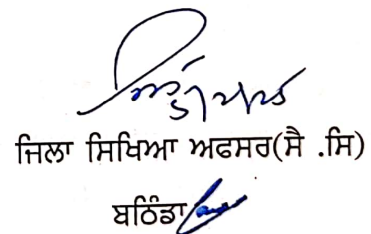 ਜਿਲਾ ਸਿਖਿਆ ਅਫਸਰ(ਸੈ .ਸਿ)
ਬਠਿੰਡਾ